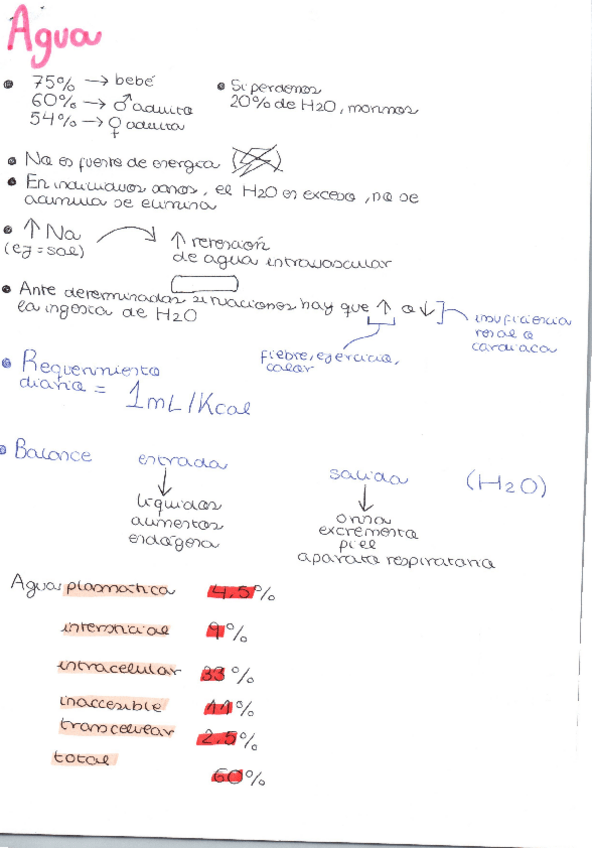 Agua
• 75% → bebé
60% → ♂ adulto
54% → ♀ adulta
• Si perdemos
20% de H2O, morimos
• No es fuente de energía
• En individuos sanos, el H2O en exceso, no se
acumula se elimina
• ↑ Na
(ej = sal)
↑ retención
de agua intravascular
• Ante determinadas situaciones hay que ↑ o ↓
la ingesta de H2O
insuficiencia
renal o
cardiaca
fiebre, ejercicio,
calor
• Requerimiento
diario = 1mL/Kcal
• Balance
entrada
↓
líquidos
alimentos
endógena
salida
↓
orina
excremento
piel
aparato respiratorio
(H2O)
Agua plasmática 4.5%
intersticial 9%
intracelular 33%
inaccesible 11%
transcelular 2.5%
total 60%